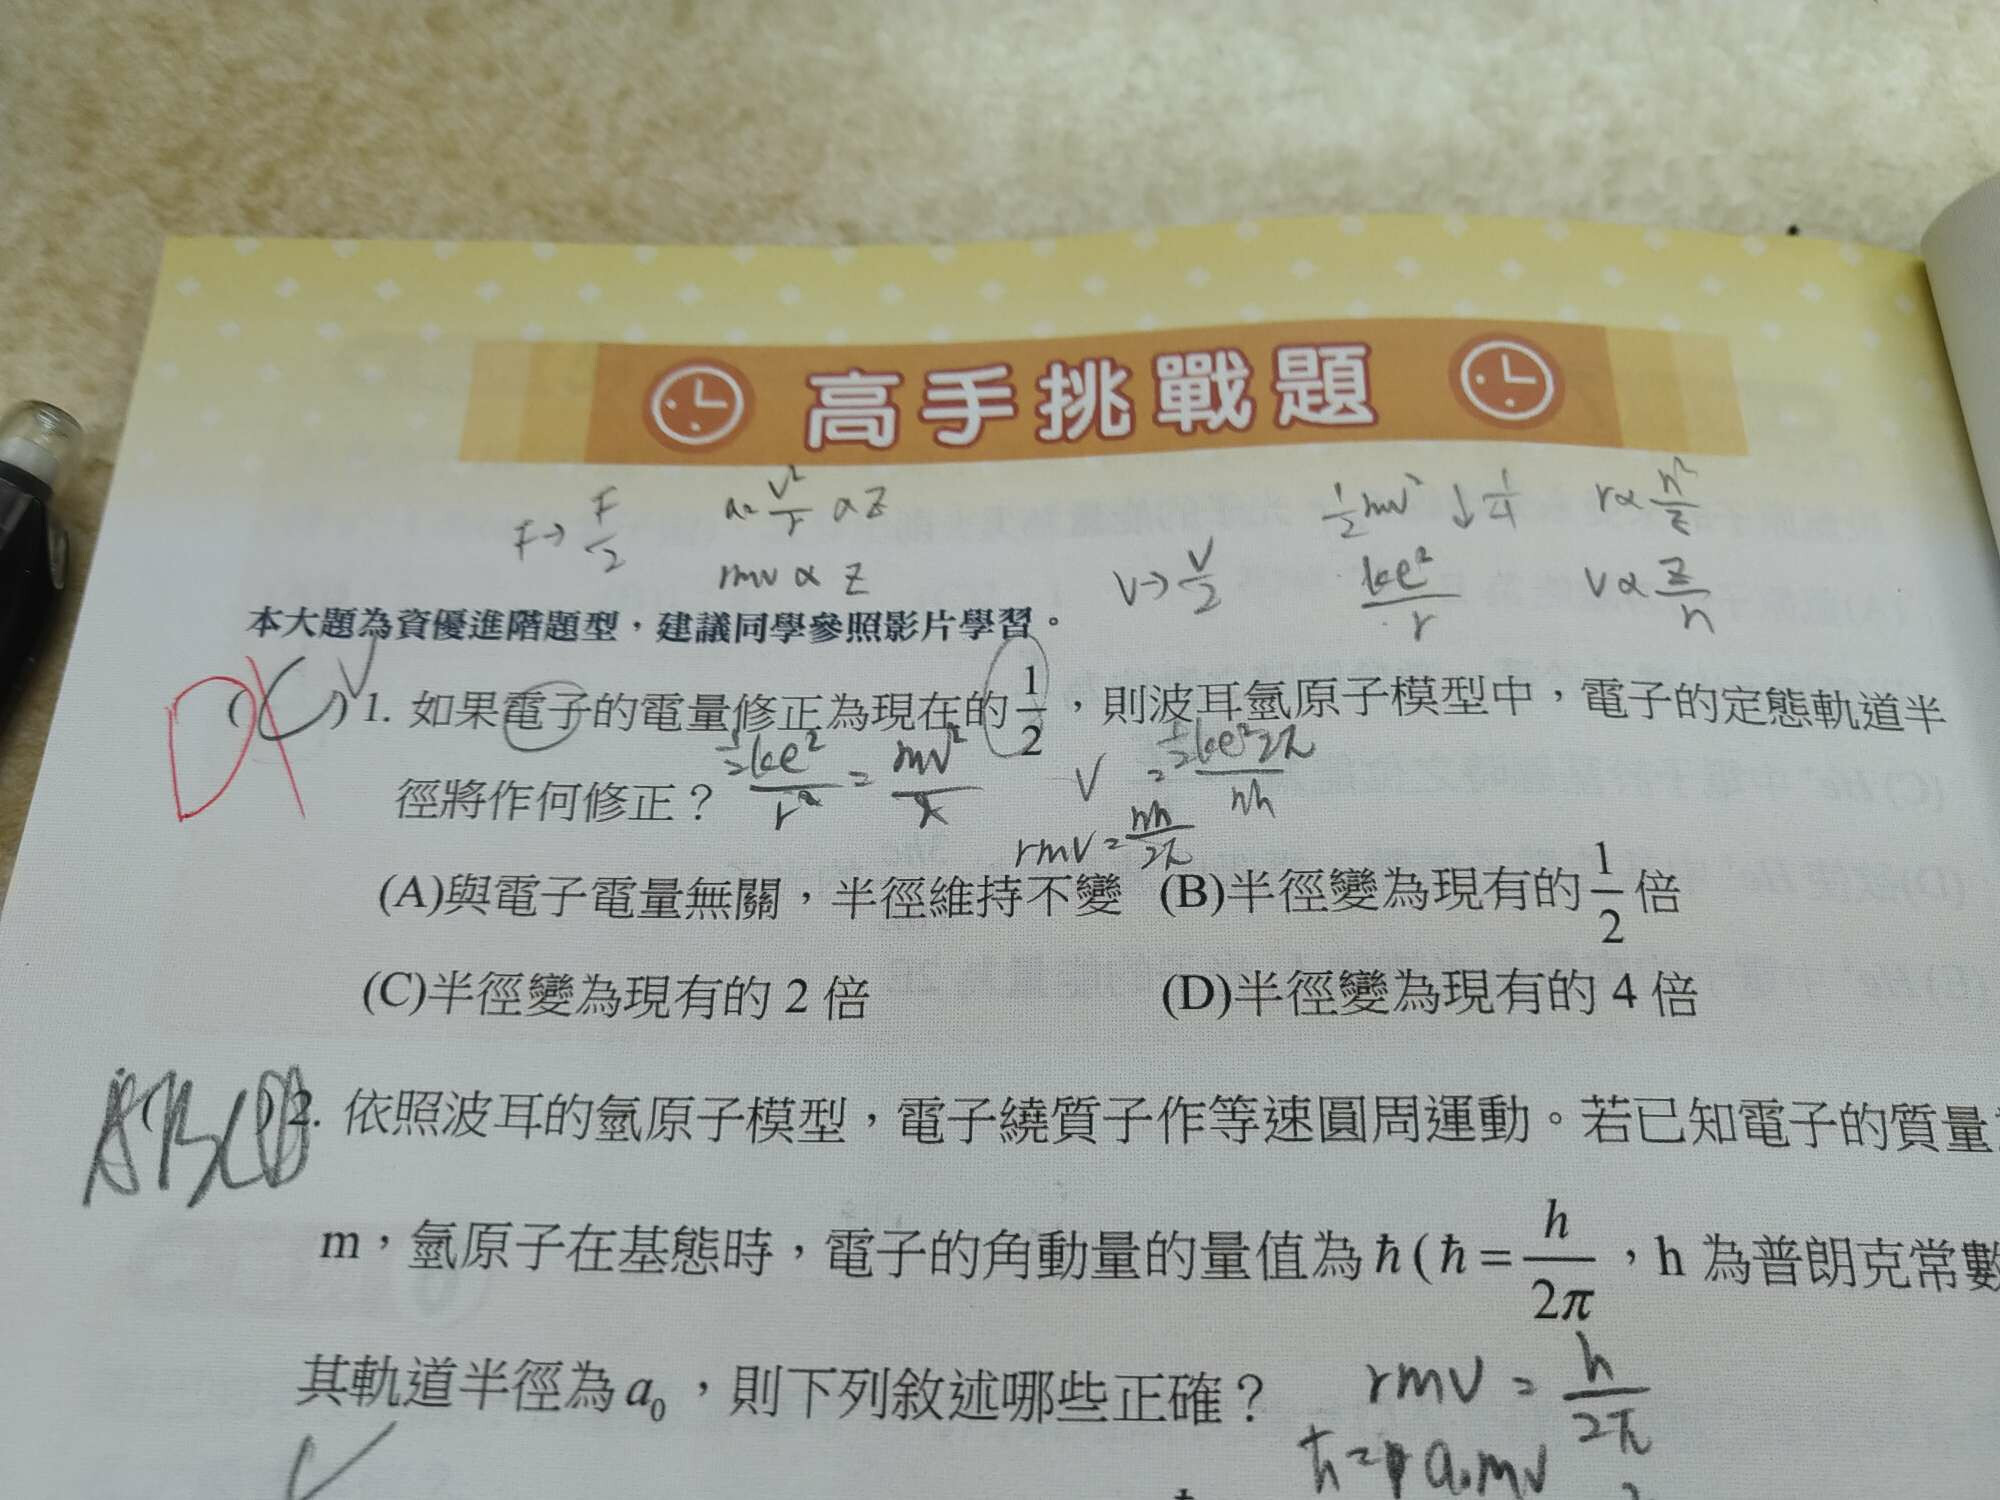 高手挑戰題
F→ F/2 a= v²/r ∝ Z ½mv² ↓ ¼ r ∝ n²/Z
rmv ∝ Z V→ V/2 ke²/r V ∝ Z/n
本大題為資優進階題型，建議同學參照影片學習。
D
( C ) 1. 如果電子的電量修正為現在的 1/2 ，則波耳氫原子模型中，電子的定態軌道半
½ke²/r² = mv²/r V = ½ke²2π/nh
徑將作何修正？
rmv = nh/2π
(A)與電子電量無關，半徑維持不變 (B)半徑變為現有的 1/2 倍
(C)半徑變為現有的 2 倍 (D)半徑變為現有的 4 倍
ABCD
( ) 2. 依照波耳的氫原子模型，電子繞質子作等速圓周運動。若已知電子的質量
m，氫原子在基態時，電子的角動量的量值為 ħ ( ħ = h/2π ，h 為普朗克常數
其軌道半徑為 a₀ ，則下列敘述哪些正確？
rmv = h/2π
ħ = a₀mv